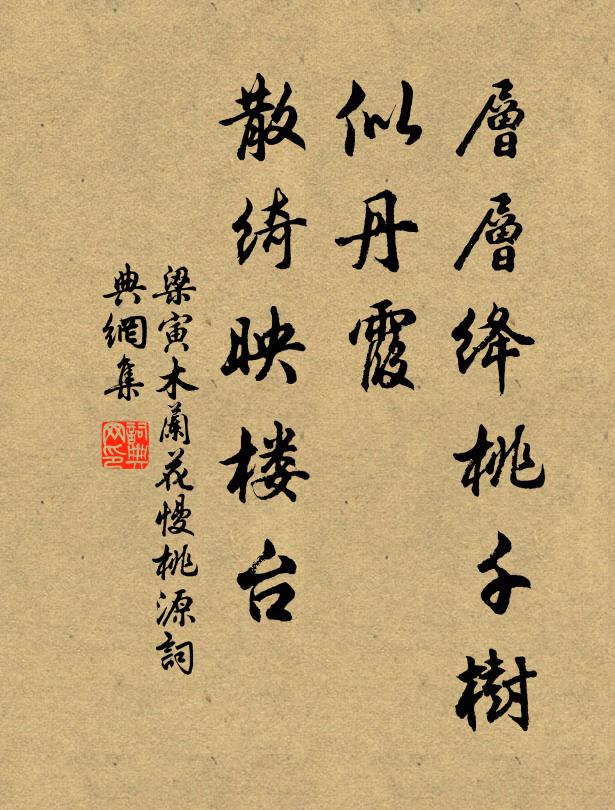 層層绛桃千樹
似丹霞
散绮映楼台
梁寅木蘭花慢桃源詞
典網集
詞典
网印